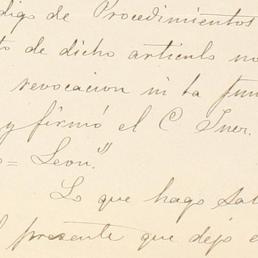 digo de Procedimientos
to de dicho articulo no
revocacion ni la fun
y firmó el C Juez.
o= Leon."
Lo que hago sab
el presente que dejo e